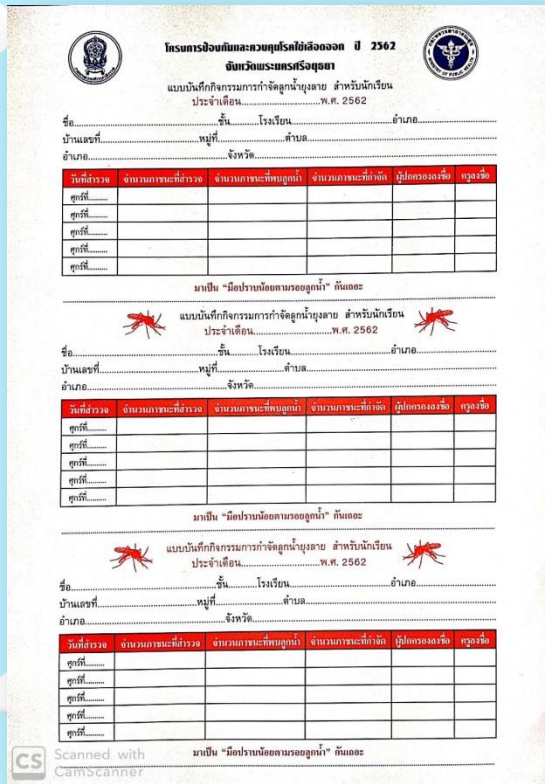 โครงการป้องกันและควบคุมโรคไข้เลือดออก ปี 2562
จังหวัดพระนครศรีอยุธยา
แบบบันทึกกิจกรรมการกำจัดลูกน้ำยุงลาย สำหรับนักเรียน
ประจำเดือน..............................พ.ศ. 2562
ชื่อ..............................ชั้น..........โรงเรียน..............................อำเภอ..............................
บ้านเลขที่..............................หมู่ที่....................ตำบล..............................
อำเภอ..............................จังหวัด..............................
วันที่สำรวจ จำนวนภาชนะที่สำรวจ จำนวนภาชนะที่พบลูกน้ำ จำนวนภาชนะที่กำจัด ผู้ปกครองลงชื่อ ครูลงชื่อ
ศุกร์ที่.........
ศุกร์ที่.........
ศุกร์ที่.........
ศุกร์ที่.........
ศุกร์ที่.........
มาเป็น “มือปราบน้อยตามรอยลูกน้ำ” กันเถอะ
แบบบันทึกกิจกรรมการกำจัดลูกน้ำยุงลาย สำหรับนักเรียน
ประจำเดือน..............................พ.ศ. 2562
ชื่อ..............................ชั้น..........โรงเรียน..............................อำเภอ..............................
บ้านเลขที่..............................หมู่ที่....................ตำบล..............................
อำเภอ..............................จังหวัด..............................
วันที่สำรวจ จำนวนภาชนะที่สำรวจ จำนวนภาชนะที่พบลูกน้ำ จำนวนภาชนะที่กำจัด ผู้ปกครองลงชื่อ ครูลงชื่อ
ศุกร์ที่.........
ศุกร์ที่.........
ศุกร์ที่.........
ศุกร์ที่.........
ศุกร์ที่.........
มาเป็น “มือปราบน้อยตามรอยลูกน้ำ” กันเถอะ
แบบบันทึกกิจกรรมการกำจัดลูกน้ำยุงลาย สำหรับนักเรียน
ประจำเดือน..............................พ.ศ. 2562
ชื่อ..............................ชั้น..........โรงเรียน..............................อำเภอ..............................
บ้านเลขที่..............................หมู่ที่....................ตำบล..............................
อำเภอ..............................จังหวัด..............................
วันที่สำรวจ จำนวนภาชนะที่สำรวจ จำนวนภาชนะที่พบลูกน้ำ จำนวนภาชนะที่กำจัด ผู้ปกครองลงชื่อ ครูลงชื่อ
ศุกร์ที่.........
ศุกร์ที่.........
ศุกร์ที่.........
ศุกร์ที่.........
ศุกร์ที่.........
มาเป็น “มือปราบน้อยตามรอยลูกน้ำ” กันเถอะ
CS Scanned with
CamScanner